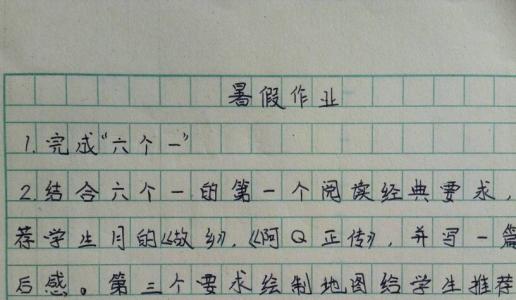 暑假作业
1.完成“六个一”
2.结合六个一的第一个阅读经典要求,
荐学生月的《故乡》,《阿Q正传》,并写一篇
后感。第三个要求绘制地图给学生推荐